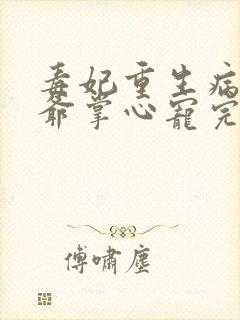 毒妃重生病
爷掌心宠完
傅啸尘